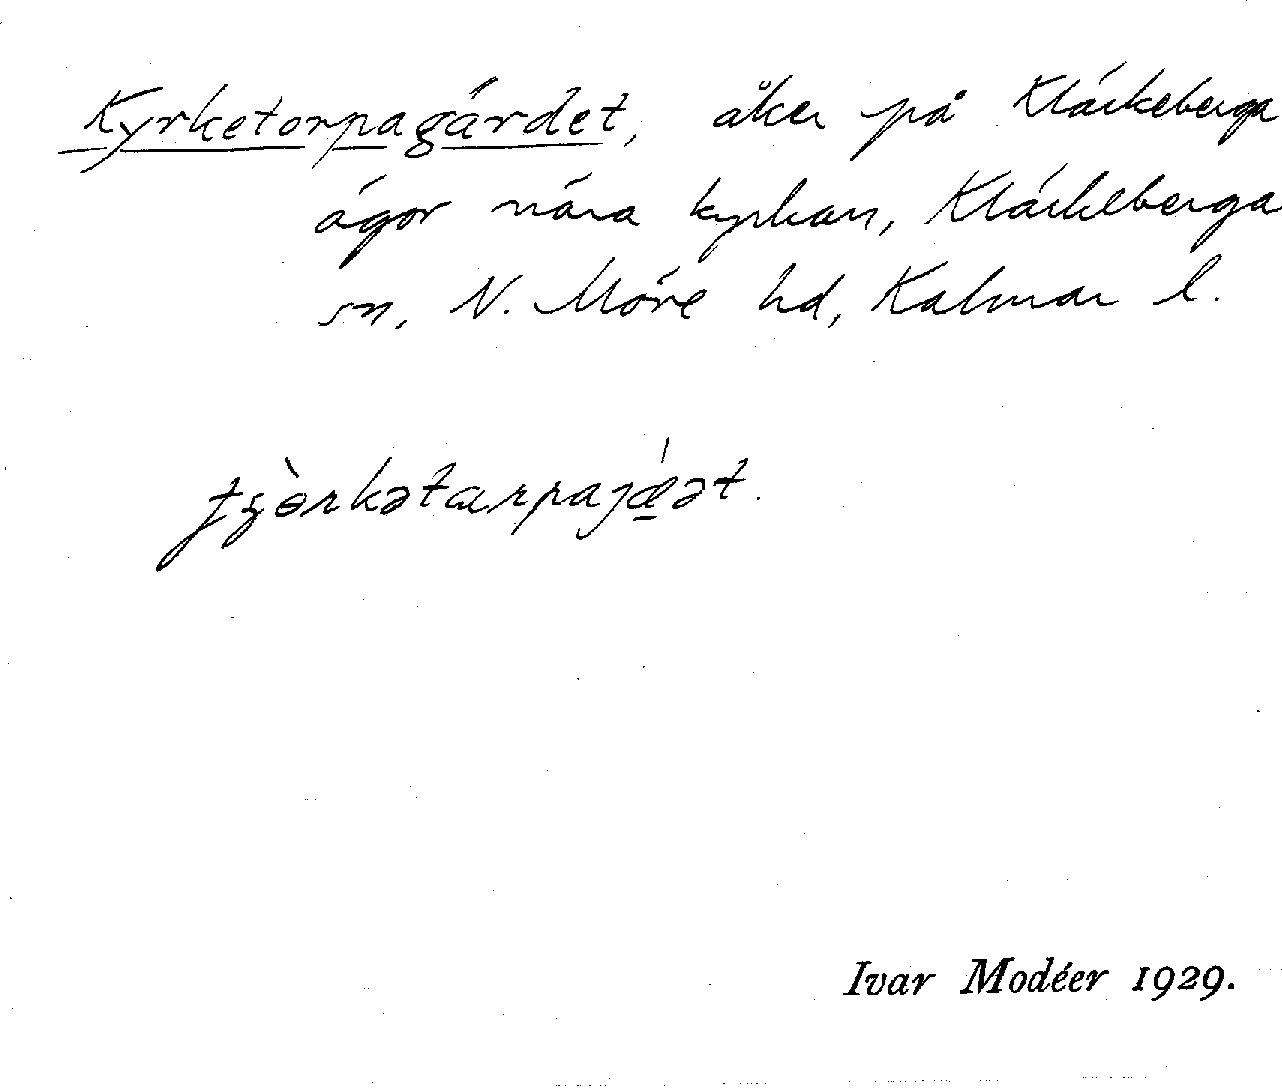 Kyrketorpagärdet, åker på Kläckeberga
ägor nära kyrkan, Kläckeberga
sn, N. Möre hd, Kalmar l.
Ivar Modéer 1929.